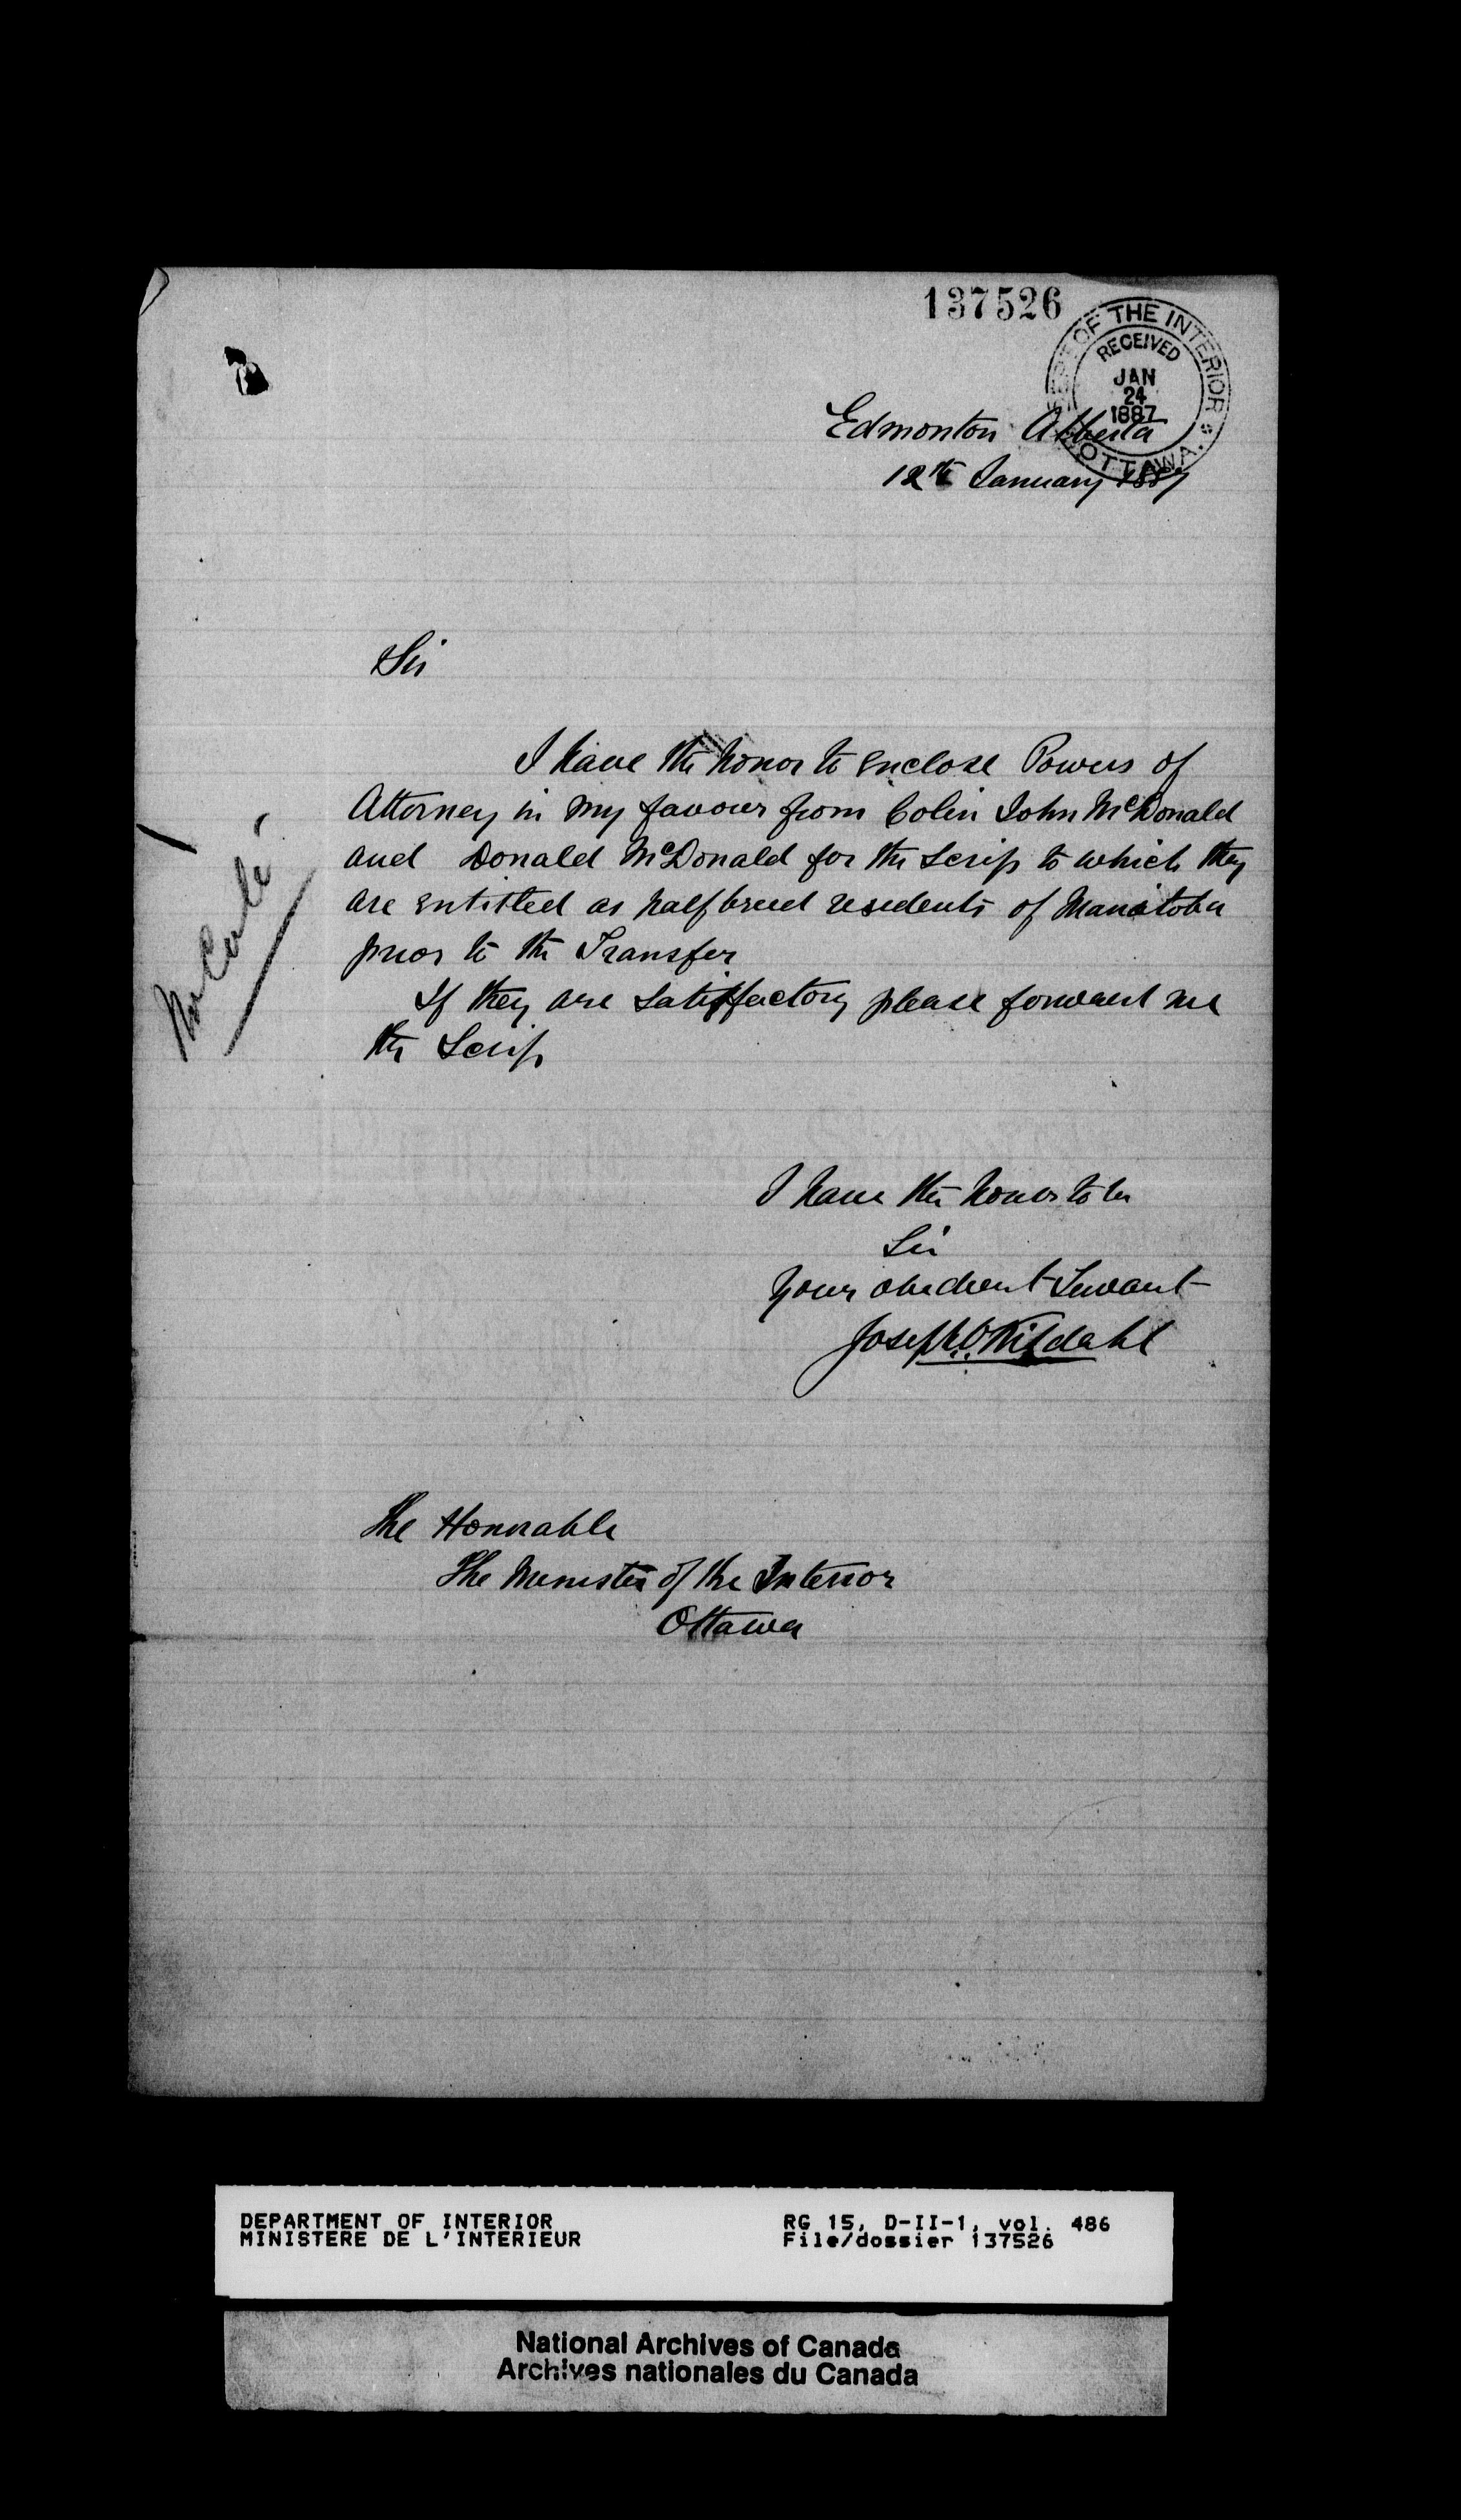 137526
DEPT OF THE INTERIOR
RECEIVED
JAN
24
1887
OTTAWA.
Edmonton Alberta
12th January 1887
Sir
I have the honor to enclose Powers of
Attorney in my favour from Colin John McDonald
and Donald McDonald for the Scrip to which they
are entitled as halfbreed residents of Manitoba
prior to the Transfer
If they are satisfactory please forward me
the Scrip
I have the honor to be
Sir
Your obedient Servant
Joseph O. Kildahl
The Honorable
The Minister of the Interior
Ottawa
DEPARTMENT OF INTERIOR
MINISTERE DE L'INTERIEUR
RG 15, D-II-1, vol. 486
File/dossier 137526
National Archives of Canada
Archives nationales du Canada